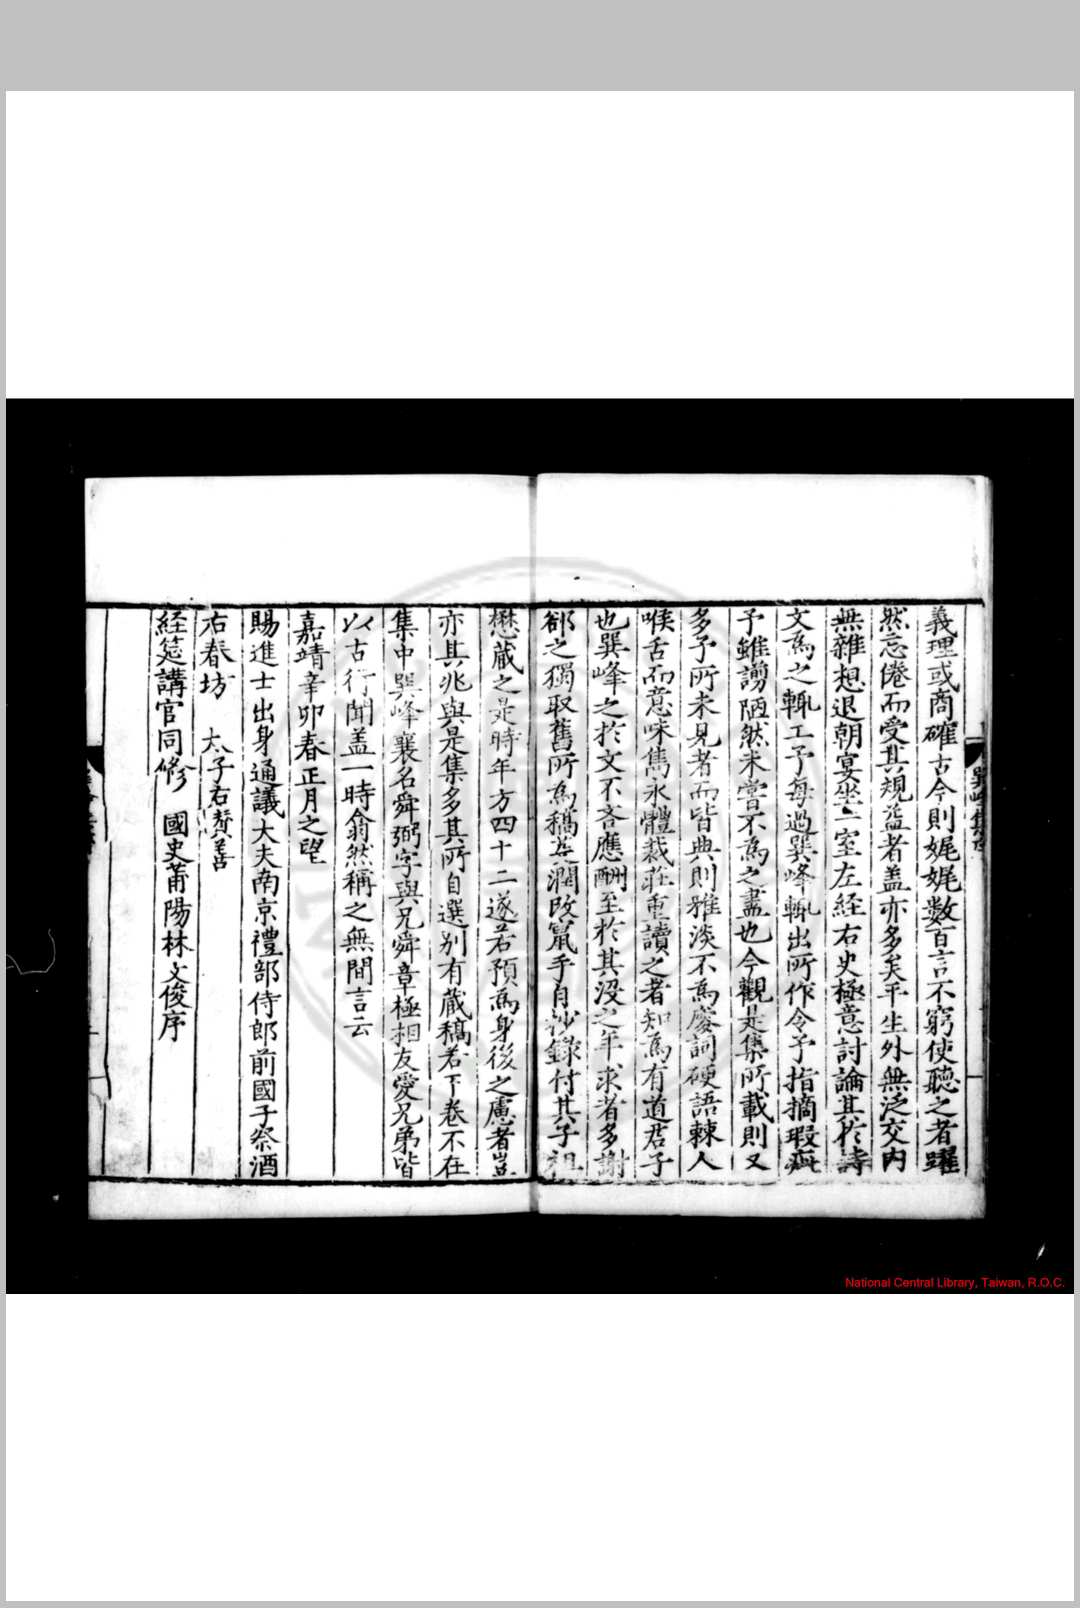 義理或商確古今則娓娓數百言不窮使聽之者躍
然忘倦而受其規益者盖亦多矣平生外無泛交内
無雜想退朝宴坐一室左経右史極意討論其於詩
文爲之輒工予每過巽峰輒出所作令予指摘瑕疵
予雖謭陋然未嘗不爲之盡也今觀是集所載則又
多予所未見者而皆典則雅淡不爲廋詞硬語棘人
喉舌而意味雋永體裁莊重讀之者知爲有道君子
也巽峰之於文不吝應酬至於其没之年求者多謝
郤之獨取舊所爲稿芟潤改竄手自抄錄付其子祖
懋蔵之是時年方四十二遂若預爲身後之慮者豈
亦其兆與是集多其所自選别有蔵稿若干卷不在
集中巽峰襄名舜弼字與兄舜章極相友愛兄弟皆
以古行聞盖一時翕然稱之無間言云
嘉靖辛卯春正月之望
賜進士出身通議大夫南京禮部侍郎前國子祭酒
右春坊 太子右賛善
経筵講官同修 國史莆陽林文俊序
巽峰集序
National Central Library, Taiwan, R.O.C.